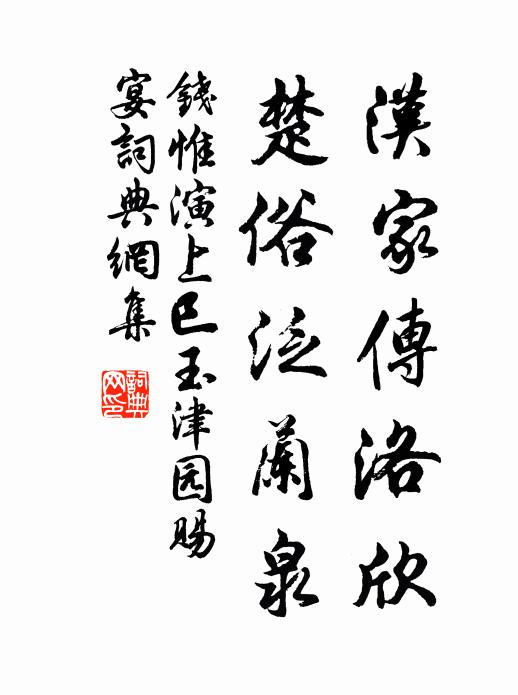 漢家傳洛欣
楚俗泛蘭泉
錢惟演上巳玉津园賜
宴詞典網集
詞典
网印